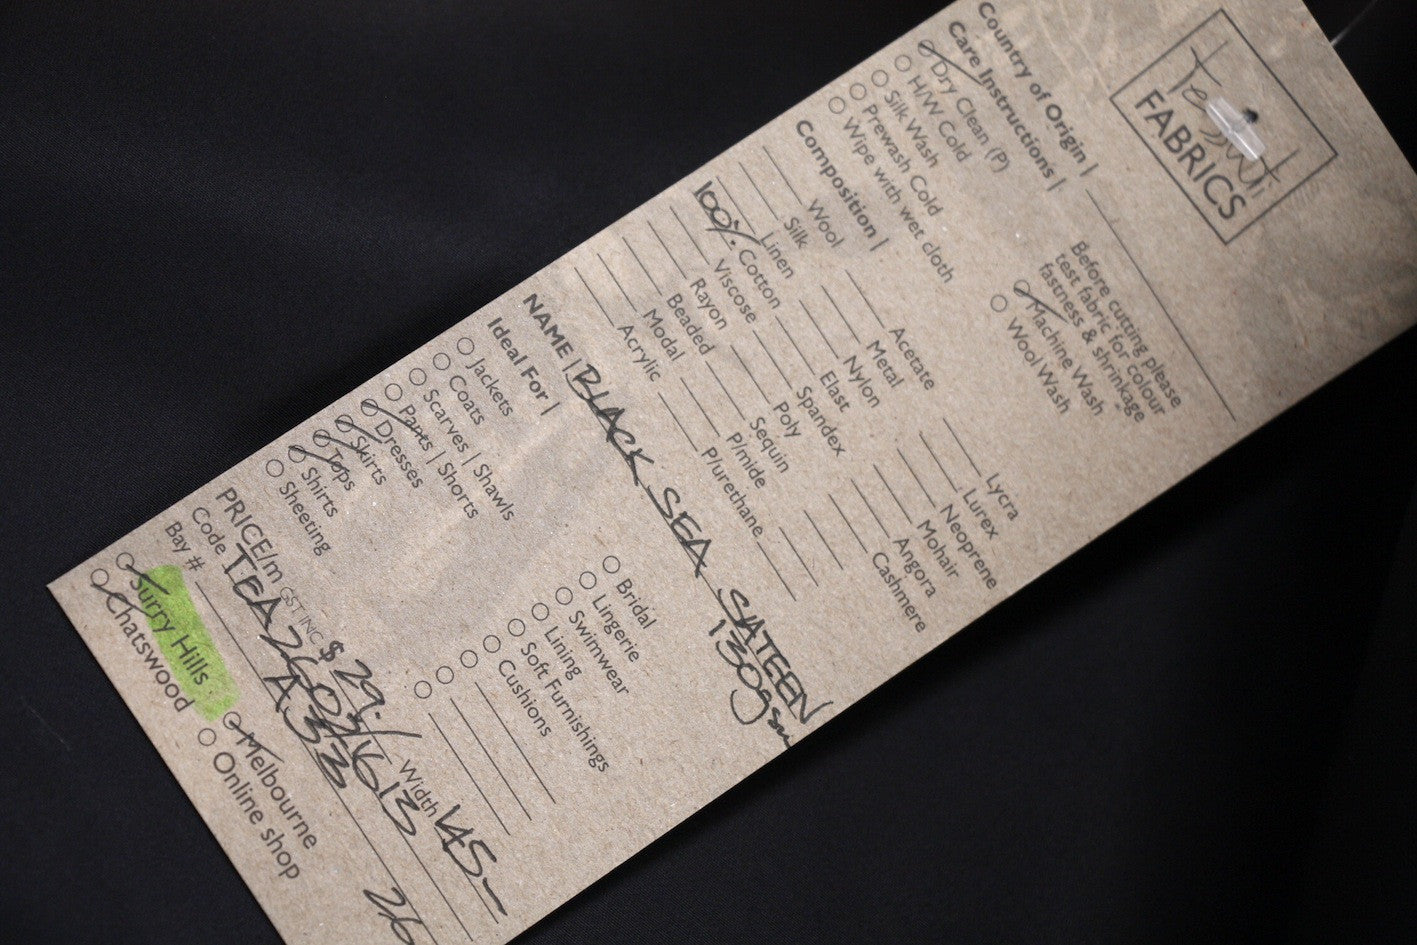 Tessuti
FABRICS
Country of Origin |
Care Instructions |
Dry Clean (P)
H/W Cold
Silk Wash
Prewash Cold
Wipe with wet cloth
Before cutting please
test fabric for colour
fastness & shrinkage
Machine Wash
Wool Wash
Composition |
Wool
Silk
Linen
100% Cotton
Viscose
Rayon
Beaded
Modal
Acrylic
Acetate
Metal
Nylon
Elast
Spandex
Poly
Sequin
P/mide
P/urethane
Lycra
Lurex
Neoprene
Mohair
Angora
Cashmere
NAME | BLACK SEA SATEEN
130gsm
Ideal For |
Jackets
Coats
Scarves | Shawls
Pants | Shorts
Dresses
Skirts
Tops
Shirts
Sheeting
Bridal
Lingerie
Swimwear
Lining
Soft Furnishings
Cushions
PRICE/m GST INC $29./ Width 145
Code
Bay # A33
26
Surry Hills
Chatswood
Melbourne
Online shop